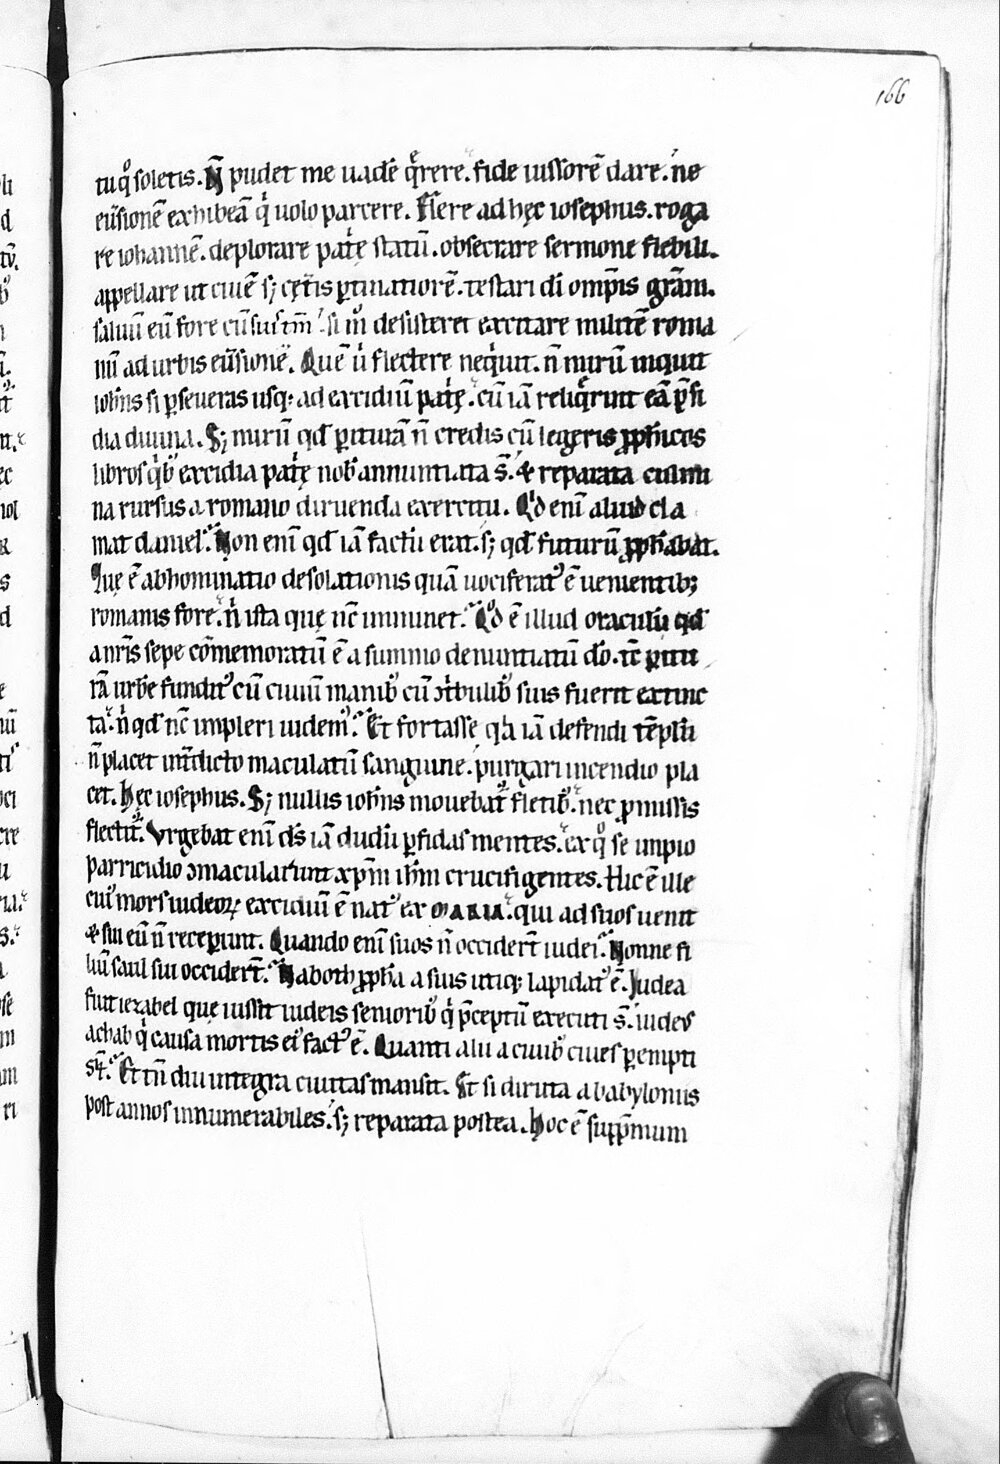 166
tuqͦ soletis. N̄ pudet me uadē q̄rere. fide iussorē dare. ne
eūsionē exhibeā q̇ uolo parcere. Flere ad hęc iosephus. roga
re iohannē. deplorare pat'ę statū. obsecrare sermone flebili.
appellare ut ciuē s; cęt'is ptinatiorē. testari dī omp̄is grām.
saluū eū fore
desisteret excitare militē roma
nū ad urbis eūsionē. Quē ů flectere neq̇uit. n̄ mirū inquit
ioh̄s si pseueras usq; ad excidiū pat'ę. cū iā reliq̇rint eā p̄si
dia diuina. S; mirū qd̄ piturā n̄ credis cū legeris ꝓph̄icos
libros q̇b; excidia pat'ę nob' annuntiata s̄. & reparata culmi
na rursus a romano diruenda exercitu. Qͥd enī aliud cla
mat daniel. Non enī qd̄ iā factū erat. s; qd̄ futurū ꝓph̄abat.
Quę ē abhominatio desolationis quā uociferat' ē uenientib;
romanis fore. n̄ ista quę nc̄ imminet. Qͦd ē illud oraculū qd̄
a nr̄is sepe cōmemoratū ē a summo denuntiatū dō. tc̄ pitu
rā urbē fundit' cū ciuiū manib' cū ꝯt'bulib' suis fuerit extinc
ta. n̄ qd̄ nc̄ impleri uidem'. Et fortasse qͥa iā defendi tēplū
n̄ placet int'dicto maculatū sanguine. purgari incendio pla
cet. Hęc iosephus. S; nullis ioh̄s mouebat' fletib'. nec ꝓmissis
flectit'. Vrgebat enī d̄s iā dudū pfidas mentes. ex qͦ se impio
parricidio ꝯmaculauerunt xp̄m ih̄m crucifigentes. Hic ē ille
cui' mors iudeoꝝ excidiū ē nat' ex MARIA. qui ad suos uenit
& sui eū n̄ receperunt. Quando enī suos n̄ occiderī iudei. Nonne fi
liū saul sui occiderī. Naboth ꝓph̄a a suis utiq; lapidat' ē. Iudea
fiut iezabel quę iussit iudeis seniorib' q̇ p̄ceptū executi s̄. iudeus
achab q̇ causa mortis ei' fact' ē. Quanti alii a ciuib' ciues pempti
st̄. Et tn̄ diu integra ciuitas mansit. Et si diruta a babyloniis
post annos innumerabiles. s; reparata postea. Hoc ē supp̄mum